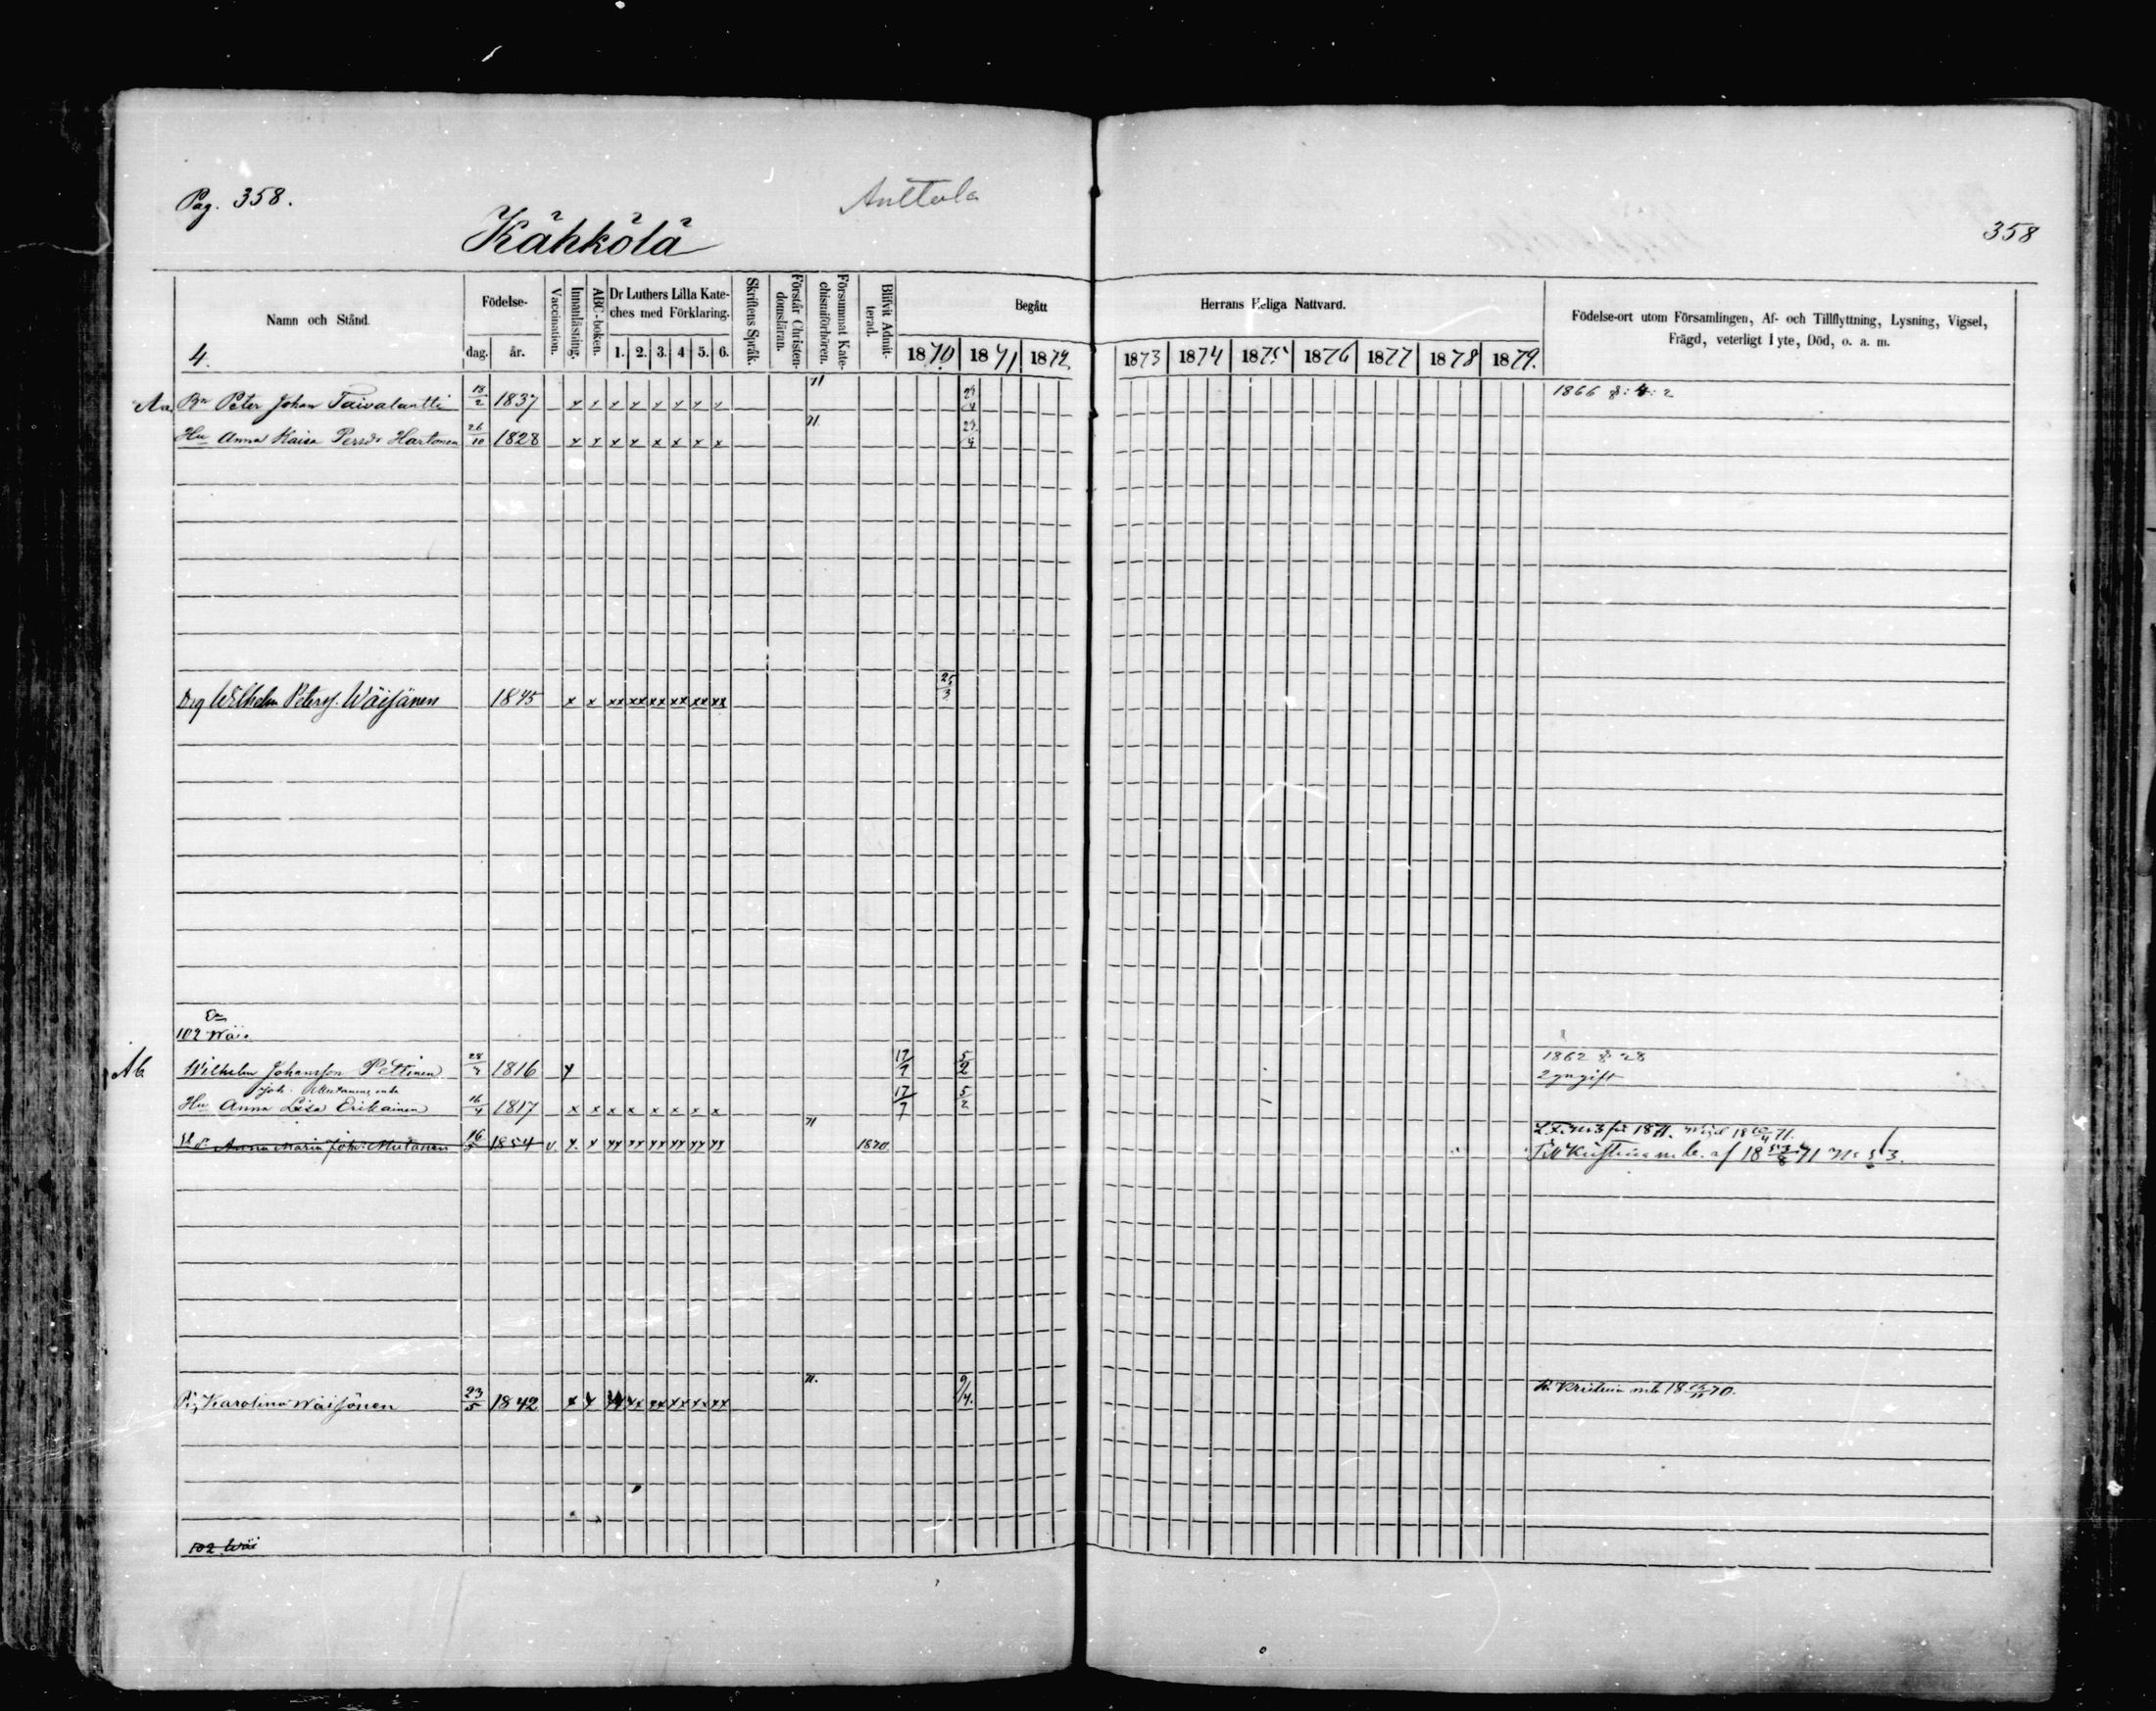 Pag. 358.
Anttola
358
Kähkölä
Namn och Stånd.
Födelse-
dag. år.
Vaccination.
Innanläsning.
ABC-boken.
Dr Luthers Lilla Kate-
ches med Förklaring.
1. 2. 3. 4 5. 6.
Skriftens Språk.
Förstår Christen-
domsläran.
Försummat Kate-
chismiförhören.
Blifvit Admit-
terad.
Begått Herrans Heliga Nattvard.
1870. 1871 1872. 1873 1874 1875 1876 1877 1878 1879.
Födelse-ort utom Församlingen, Af- och Tillflyttning, Lysning, Vigsel,
Frägd, veterligt Lyte, Död, o. a. m.
4.
Aa. Bn Peter Johan Taivalantti 13/2 1837 x x x x x x x x 71 23/4 1866 8: 4: 2
Hu Anna Kaisa Persdr Hartonen 26/10 1828 x x x x x x x x 71 23/4
Drg Wilhelm Peterss. Wäisänen 1845 x x xx xx xx xx xx xx 25/3
102 Wäi.
Ab Wilhelm Johansson Pettinen 28/7 1816 x 17/7 5/2 1862 8: 28
2 gn gift
Hu Anna Lisa Erikainen 16/4 1817 x x x x x x x x 17/7 5/2
Anna Maria Joh: Mutanen 16/5 1854 v. x x xx xx xx xx xx xx 71 1870.
Till Kristina m. b. af 18 23/8 71
Pi; Karolina Wäisänen 23/5 1842 x x xx xx xx xx xx xx 71. 9/4. fr. Kristina mb 18 70.
102 Wäi